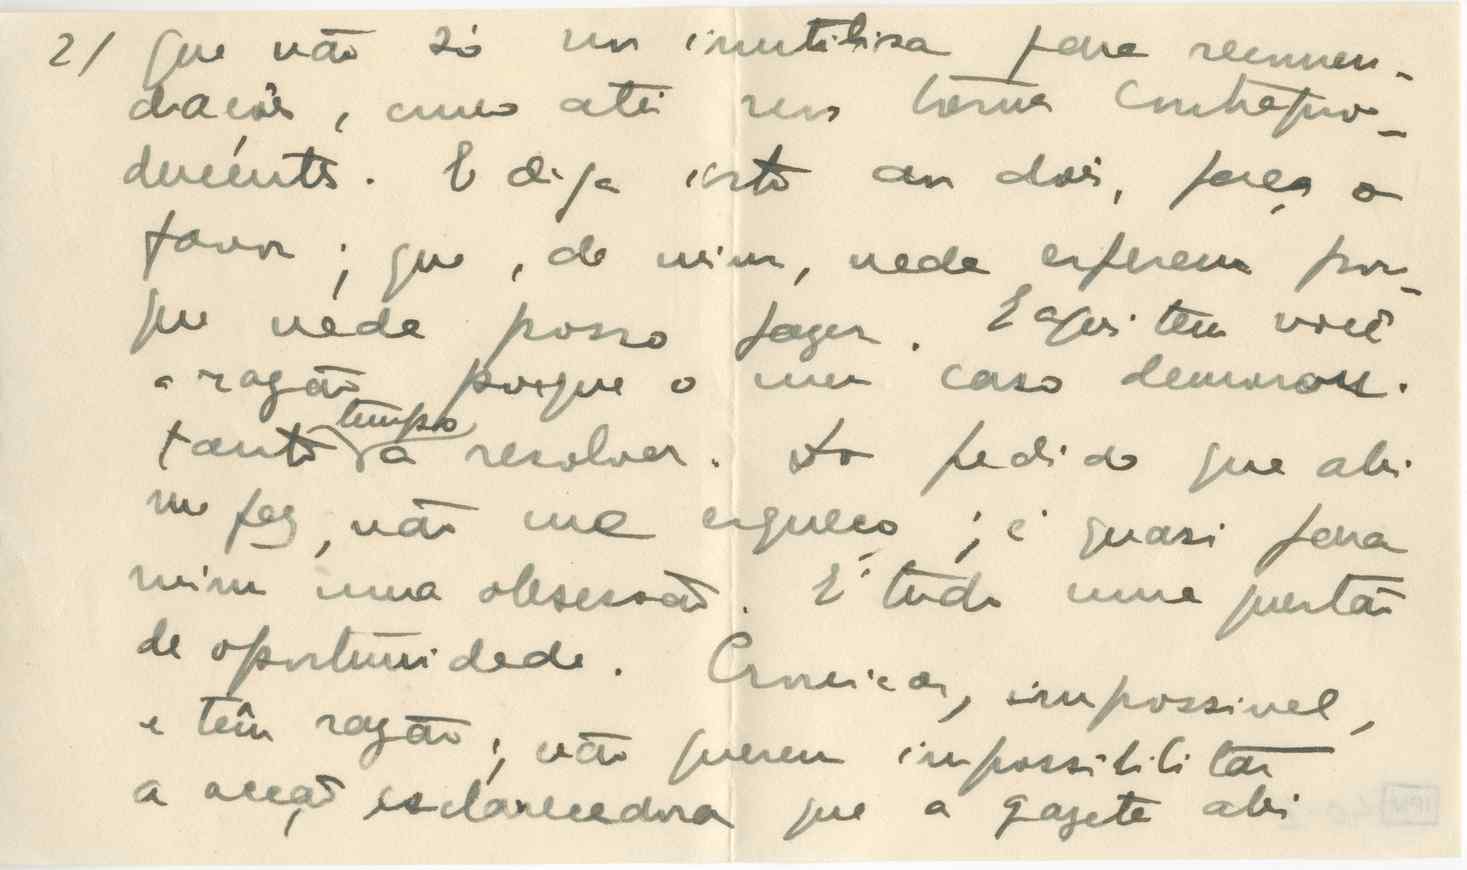 2/ que não só me inutilisa para recomen-
dações, como até me torna contrapro-
ducente. E diga isto aos dois, faça o
favor; que, de mim, nada esperem por-
que nada posso fazer. E aqui tem você
a razão porque o meu caso demorou
tanto tempo a resolver. Do pedido que ahi
me fez, não me esqueço; é quasi para
mim uma obsessão. É tudo uma questão
de oportunidade. Cronicas, impossivel,
e têm razão; não querem impossibilitar
a acção esclarecedora que a gazeta ahi